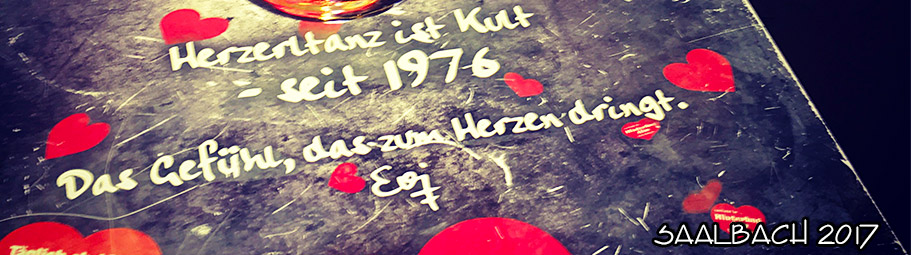 Herzerltanz ist Kult
- seit 1976
Das Gefühl, das zum Herzen dringt.
SAALBACH 2017